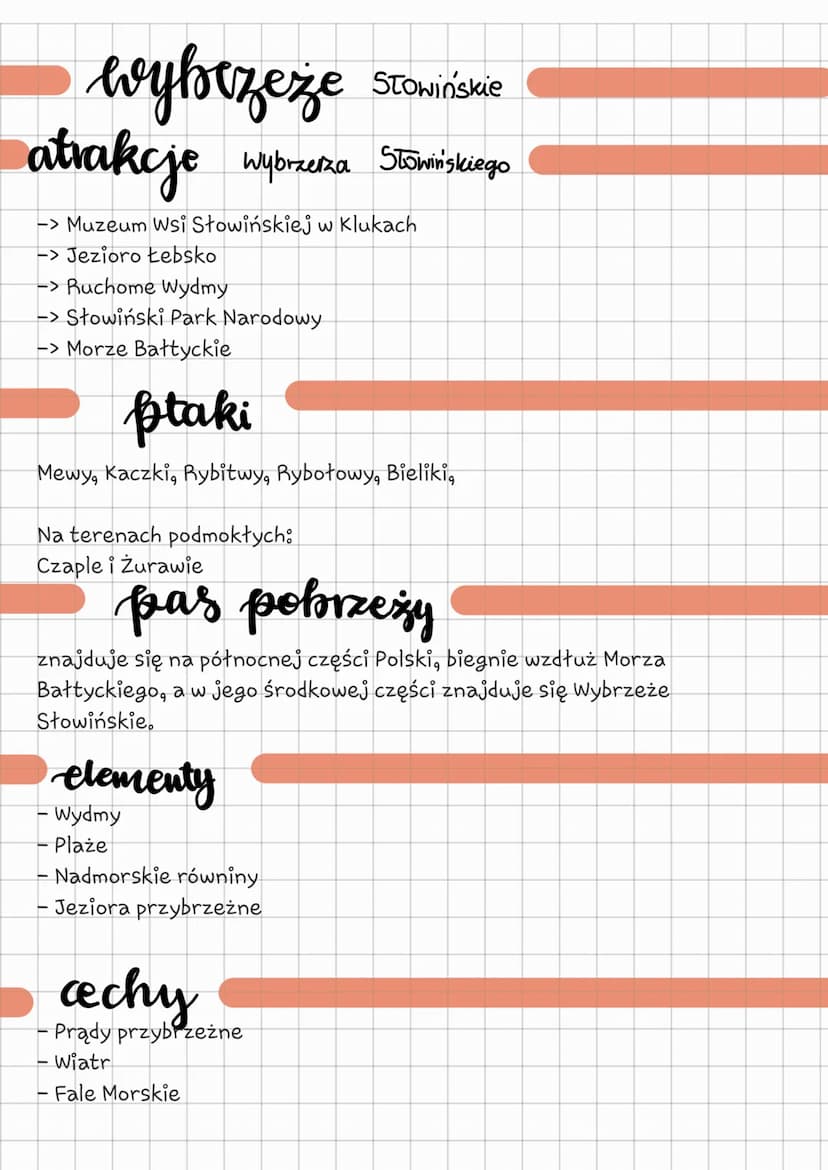 wybrzeże Słowińskie
atrakcje wybrzerza Słowińskiego
-> Muzeum Wsi Słowińskiej w Klukach
-> Jezioro Łebsko
-> Ruchome Wydmy
-> Słowiński Park Narodowy
-> Morze Bałtyckie
ptaki
Mewy, Kaczki, Rybitwy, Rybołowy, Bieliki,
Na terenach podmokłych:
Czaple i Żurawie
pas pobrzeży
znajduje się na północnej części Polski, biegnie wzdłuż Morza
Bałtyckiego, a w jego środkowej części znajduje się Wybrzeże
Słowińskie.
elementy
- Wydmy
- Plaże
- Nadmorskie równiny
- Jeziora przybrzeżne
cechy
- Prądy przybrzeżne
- Wiatr
- Fale Morskie